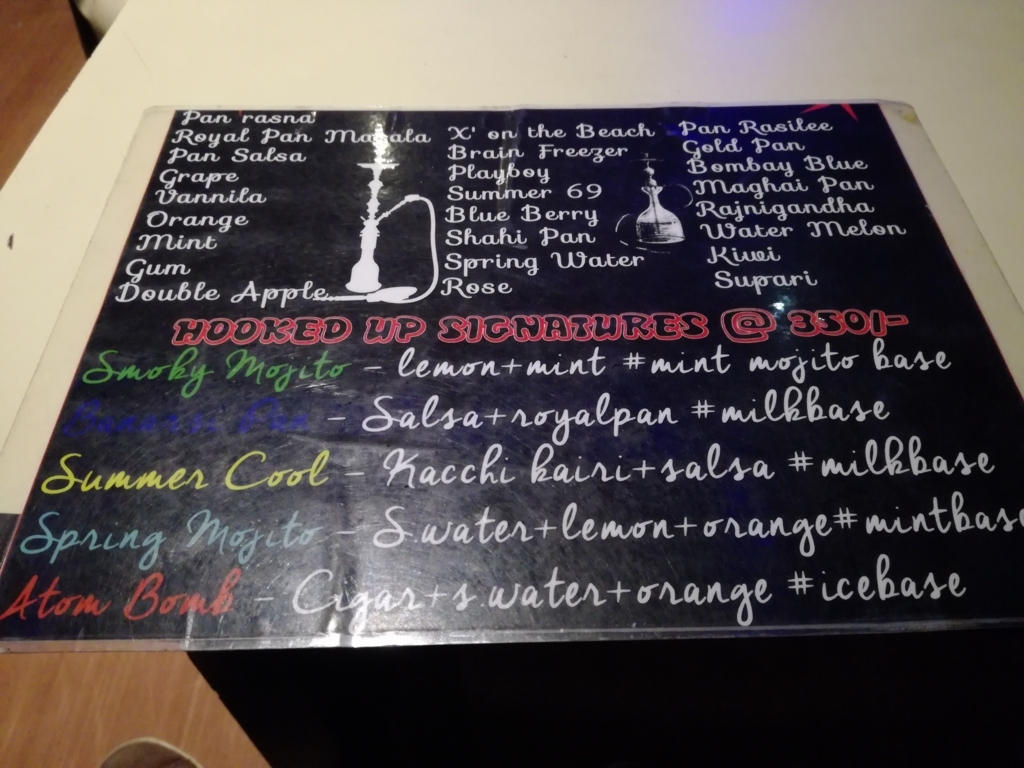 Pan rasna
Royal Pan Masala
Pan Salsa
Grape
Vannila
Orange
Mint
Gum
Double Apple
X' on the Beach
Brain Freezer
Playboy
Summer 69
Blue Berry
Shahi Pan
Spring Water
Rose
Pan Rasilee
Gold Pan
Bombay Blue
Maghai Pan
Rajnigandha
Water Melon
Kiwi
Supari
HOOKED UP SIGNATURES @ 350/-
Smoky Mojito - lemon+mint #mint mojito base
Banarsi Pan - Salsa+royalpan #milkbase
Summer Cool - Kacchi kairi+salsa #milkbase
Spring Mojito - S.water+lemon+orange#mintbase
Atom Bomb - Cigar+s.water+orange #icebase